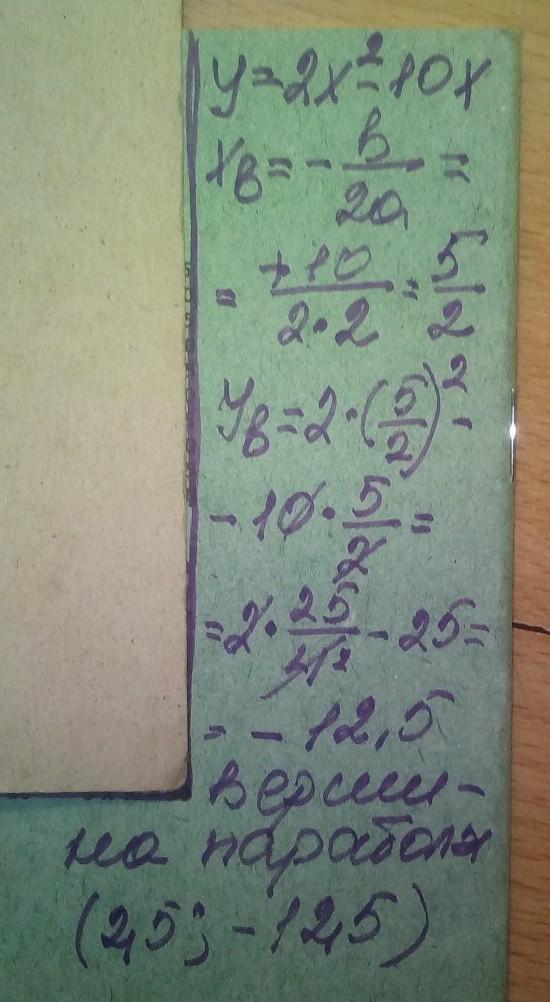 y=2x²-10x
xв=-в/2a=
=+10/2·2=5/2
yв=2·(5/2)²-
-10·5/2=
=2·25/4₂-25=
=-12,5
верши-
на параболы
(2,5; -12,5)